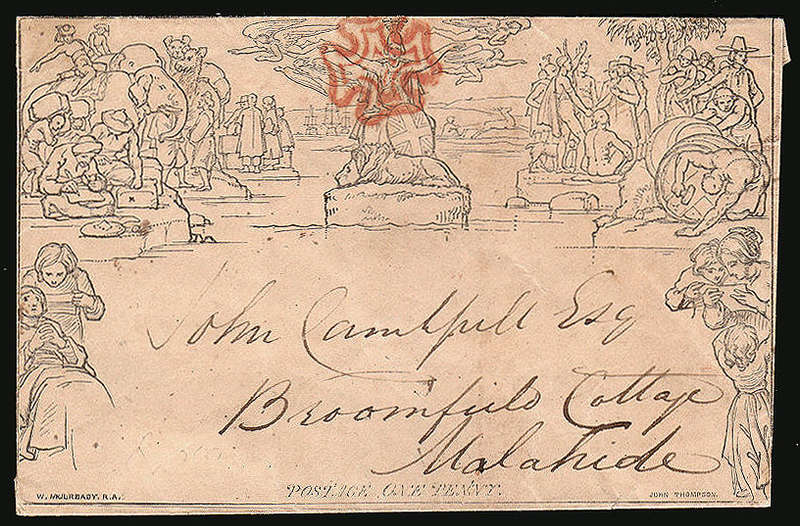 John Campbell Esq
Broomfield Cottage
Malahide
POSTAGE ONE PENNY.
W. MULREADY, R.A.
JOHN THOMPSON.